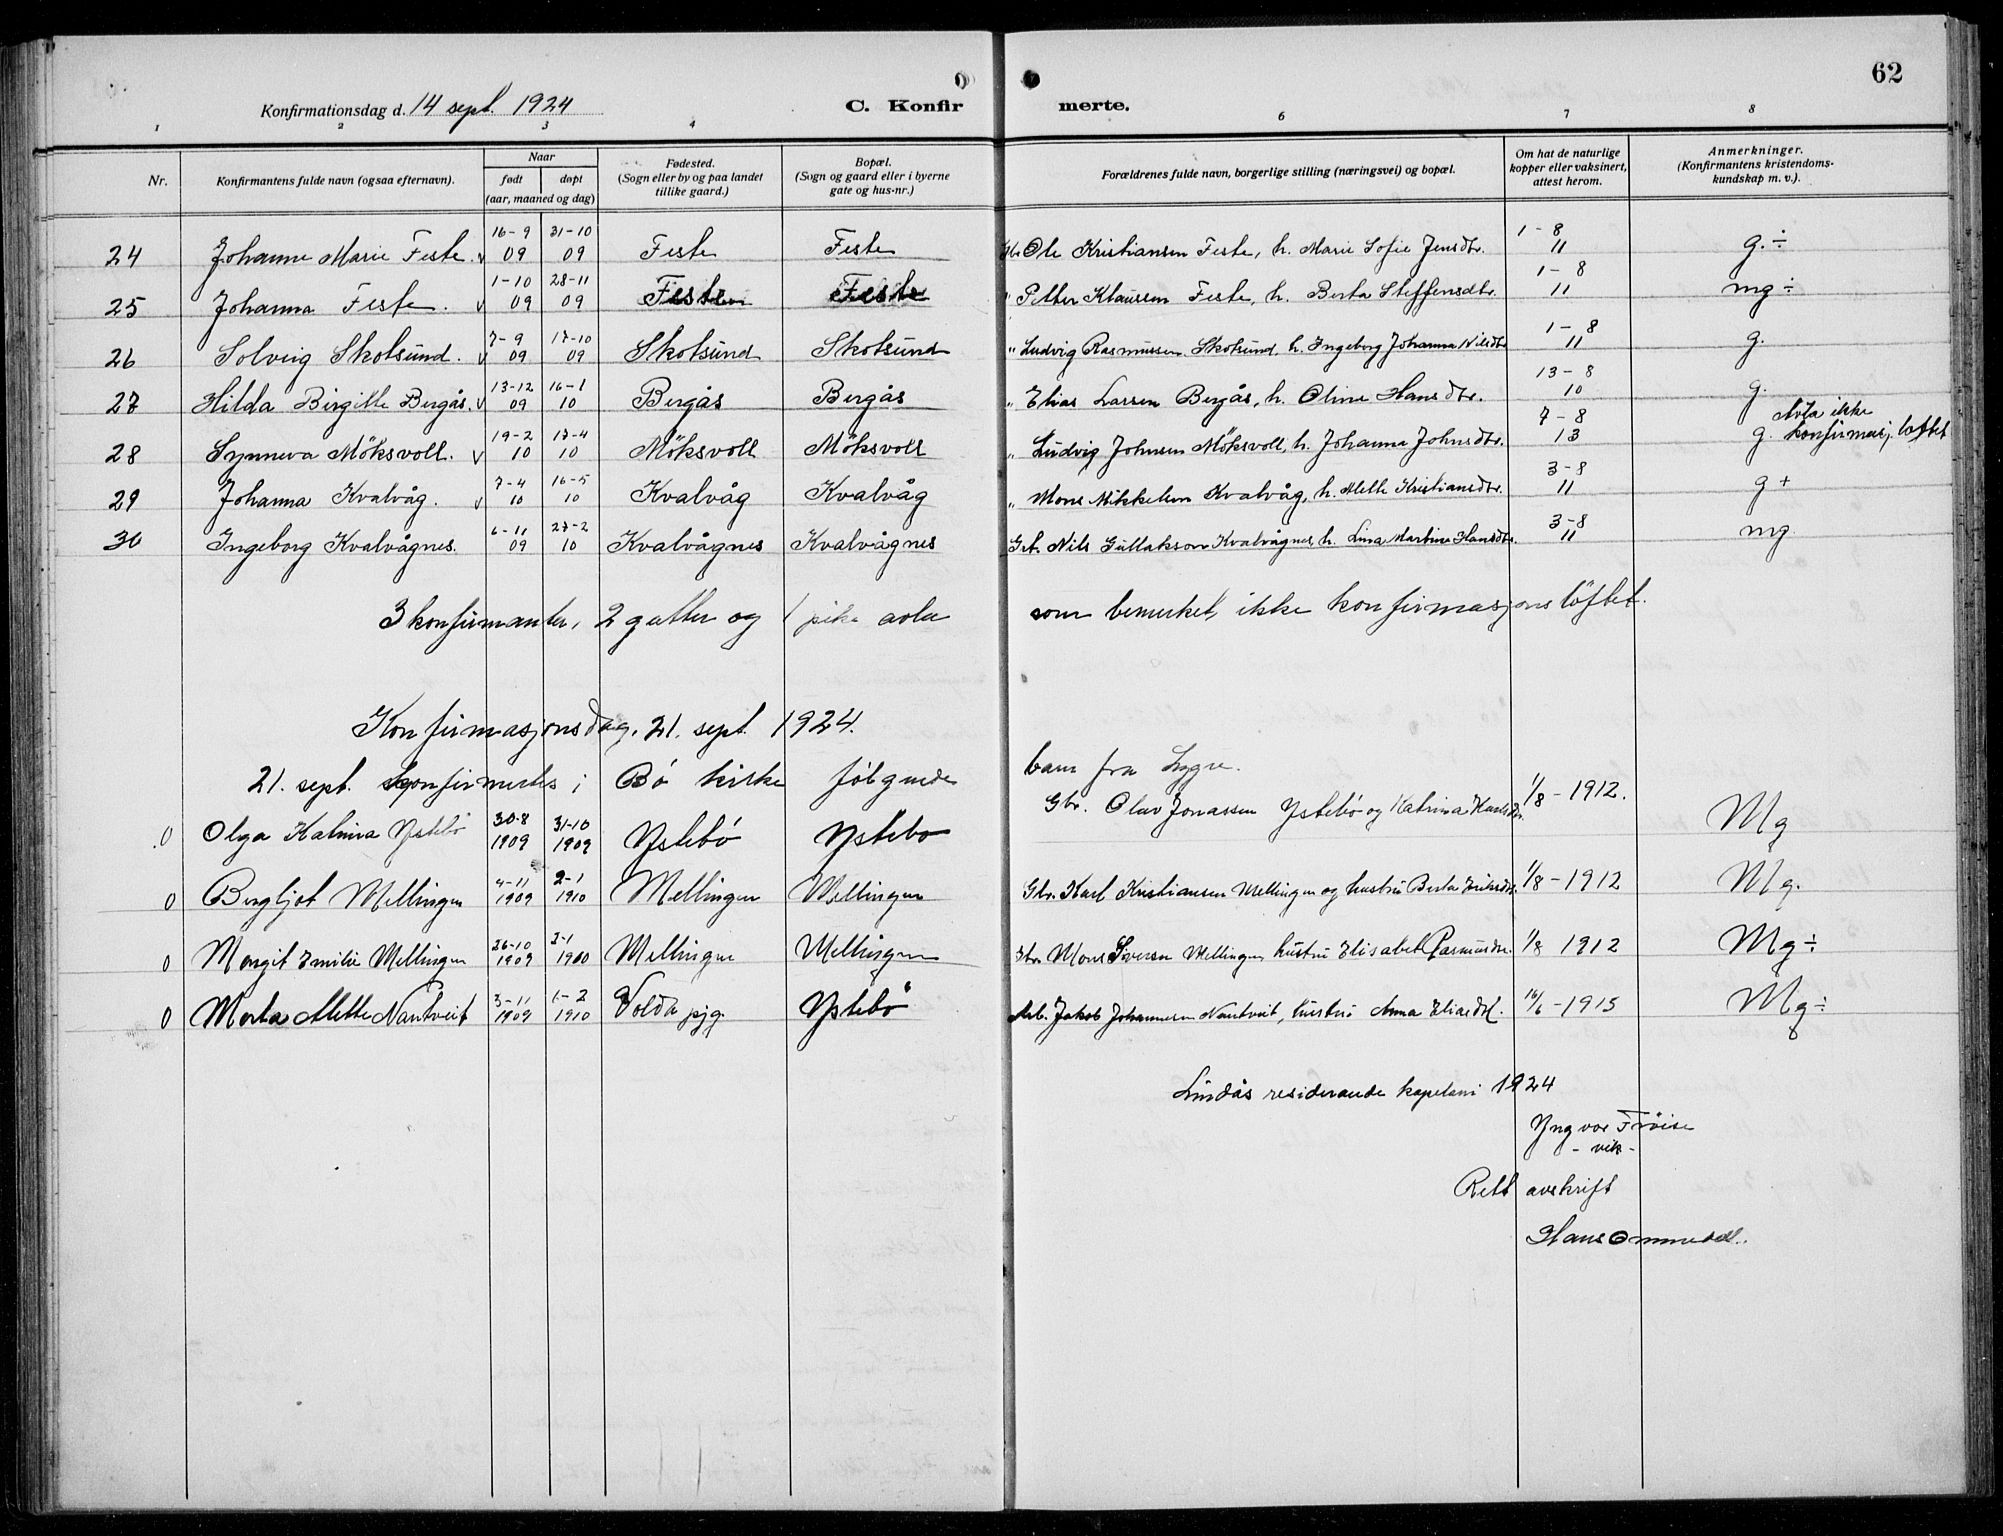 62
Konfirmationsdag d. 14 sept. 1924 C. Konfirmerte.
1 2 3 4 6 7 8
Nr. Konfirmantens fulde navn (ogsaa efternavn). Naar født døpt (aar, maaned og dag) Fødested. (Sogn eller by og paa landet tillike gaard.) Bopæl. (Sogn og gaard eller i byerne gate og hus-nr.) Forældrenes fulde navn, borgerlige stilling (næringsvei) og bopæl. Om hat de naturlige kopper eller vaksinert, attest herom. Anmerkninger. (Konfirmantens kristendomskundskap m. v.).
24 Johanne Marie Feste. v 16-9 09 31-10 09 Feste Feste Gbr. Ole Kristiansen Feste, h. Marie Sofie Jensdtr. 1-8 11 g.÷
25 Johanna Feste. v 1-10 09 28-11 09 Feste Feste " Petter Klaussen Feste, h. Berta Steffensdtr. 1-8 11 mg÷
26 Solveig Skotsund. v 7-9 09 17-10 09 Skotsund Skotsund " Ludvig Rasmussen Skotsund, h. Ingeborg Johanna Nilsdtr 1-8 11 g.
27 Hilda Birgitte Bergås. v 13-12 09 16-1 10 Bergås Bergås " Elias Larsen Bergås, h. Oline Hansdtr. 13-8 10 g.
28 Synneva Möksvoll. v 19-2 10 17-4 10 Möksvoll Möksvoll " Ludvig Johnsen Möksvoll, h. Johanna Johnsdtr. 7-8 13 g. Avla ikke konfirmasj. löftet
29 Johanna Kvalvåg. v 7-4 10 16-5 10 Kvalvåg Kvalvåg " Mons Mikkelsen Kvalvåg, h. Mette Kristiansdtr. 3-8 11 g+
30 Ingeborg Kvalvågnes. 6-11 09 27-2 10 Kvalvågnes Kvalvågnes Grb. Nils Gullakson Kvalvågnes, h. Lina Martine Hansdtr. 3-8 11 mg.
3 konfirmanter, 2 gutter og 1 pike avla som bemerket, ikke konfirmasjonslöftet.
Konfirmasjonsdag. 21. sept. 1924.
21. sept. konfirmertes i Bö kirke fölgende barn fra Lygre.
0 Olga Katrina Ystebö 30-8 1909 31-10 1909 Ystebö Ystebo Gbr. Olav Jonassen Ystebö og Katrina Karlsdtr. 1/8-1912. Mg
0 Bergljot Mellingen 4-11 1909 2-1 1910 Mellingen Mellingen Gbr. Karl Kristiansen Mellingen og hustru Berta Eriksdtr. 1/8-1912 Mg.
0 Margit Emilie Mellingen 26-10 1909 2-1 1910 Mellingen Mellingen Gbr. Mons Siversen Mellingen hustru Elisabet Rasmusdtr. 1/8 1912 Mg÷
0 Marta Alette Nautveit 3-11 1909 1-2 1910 Volda pjg. Ystebö Arb. Jakob Johannesen Nautveit, hustru Anna Eliasdtr. 16/6-1915 Mg÷
Lindås residerande kapelani 1924
Yngvar Fröise
- vik -
Rett avskrift
Hans Ommedal.